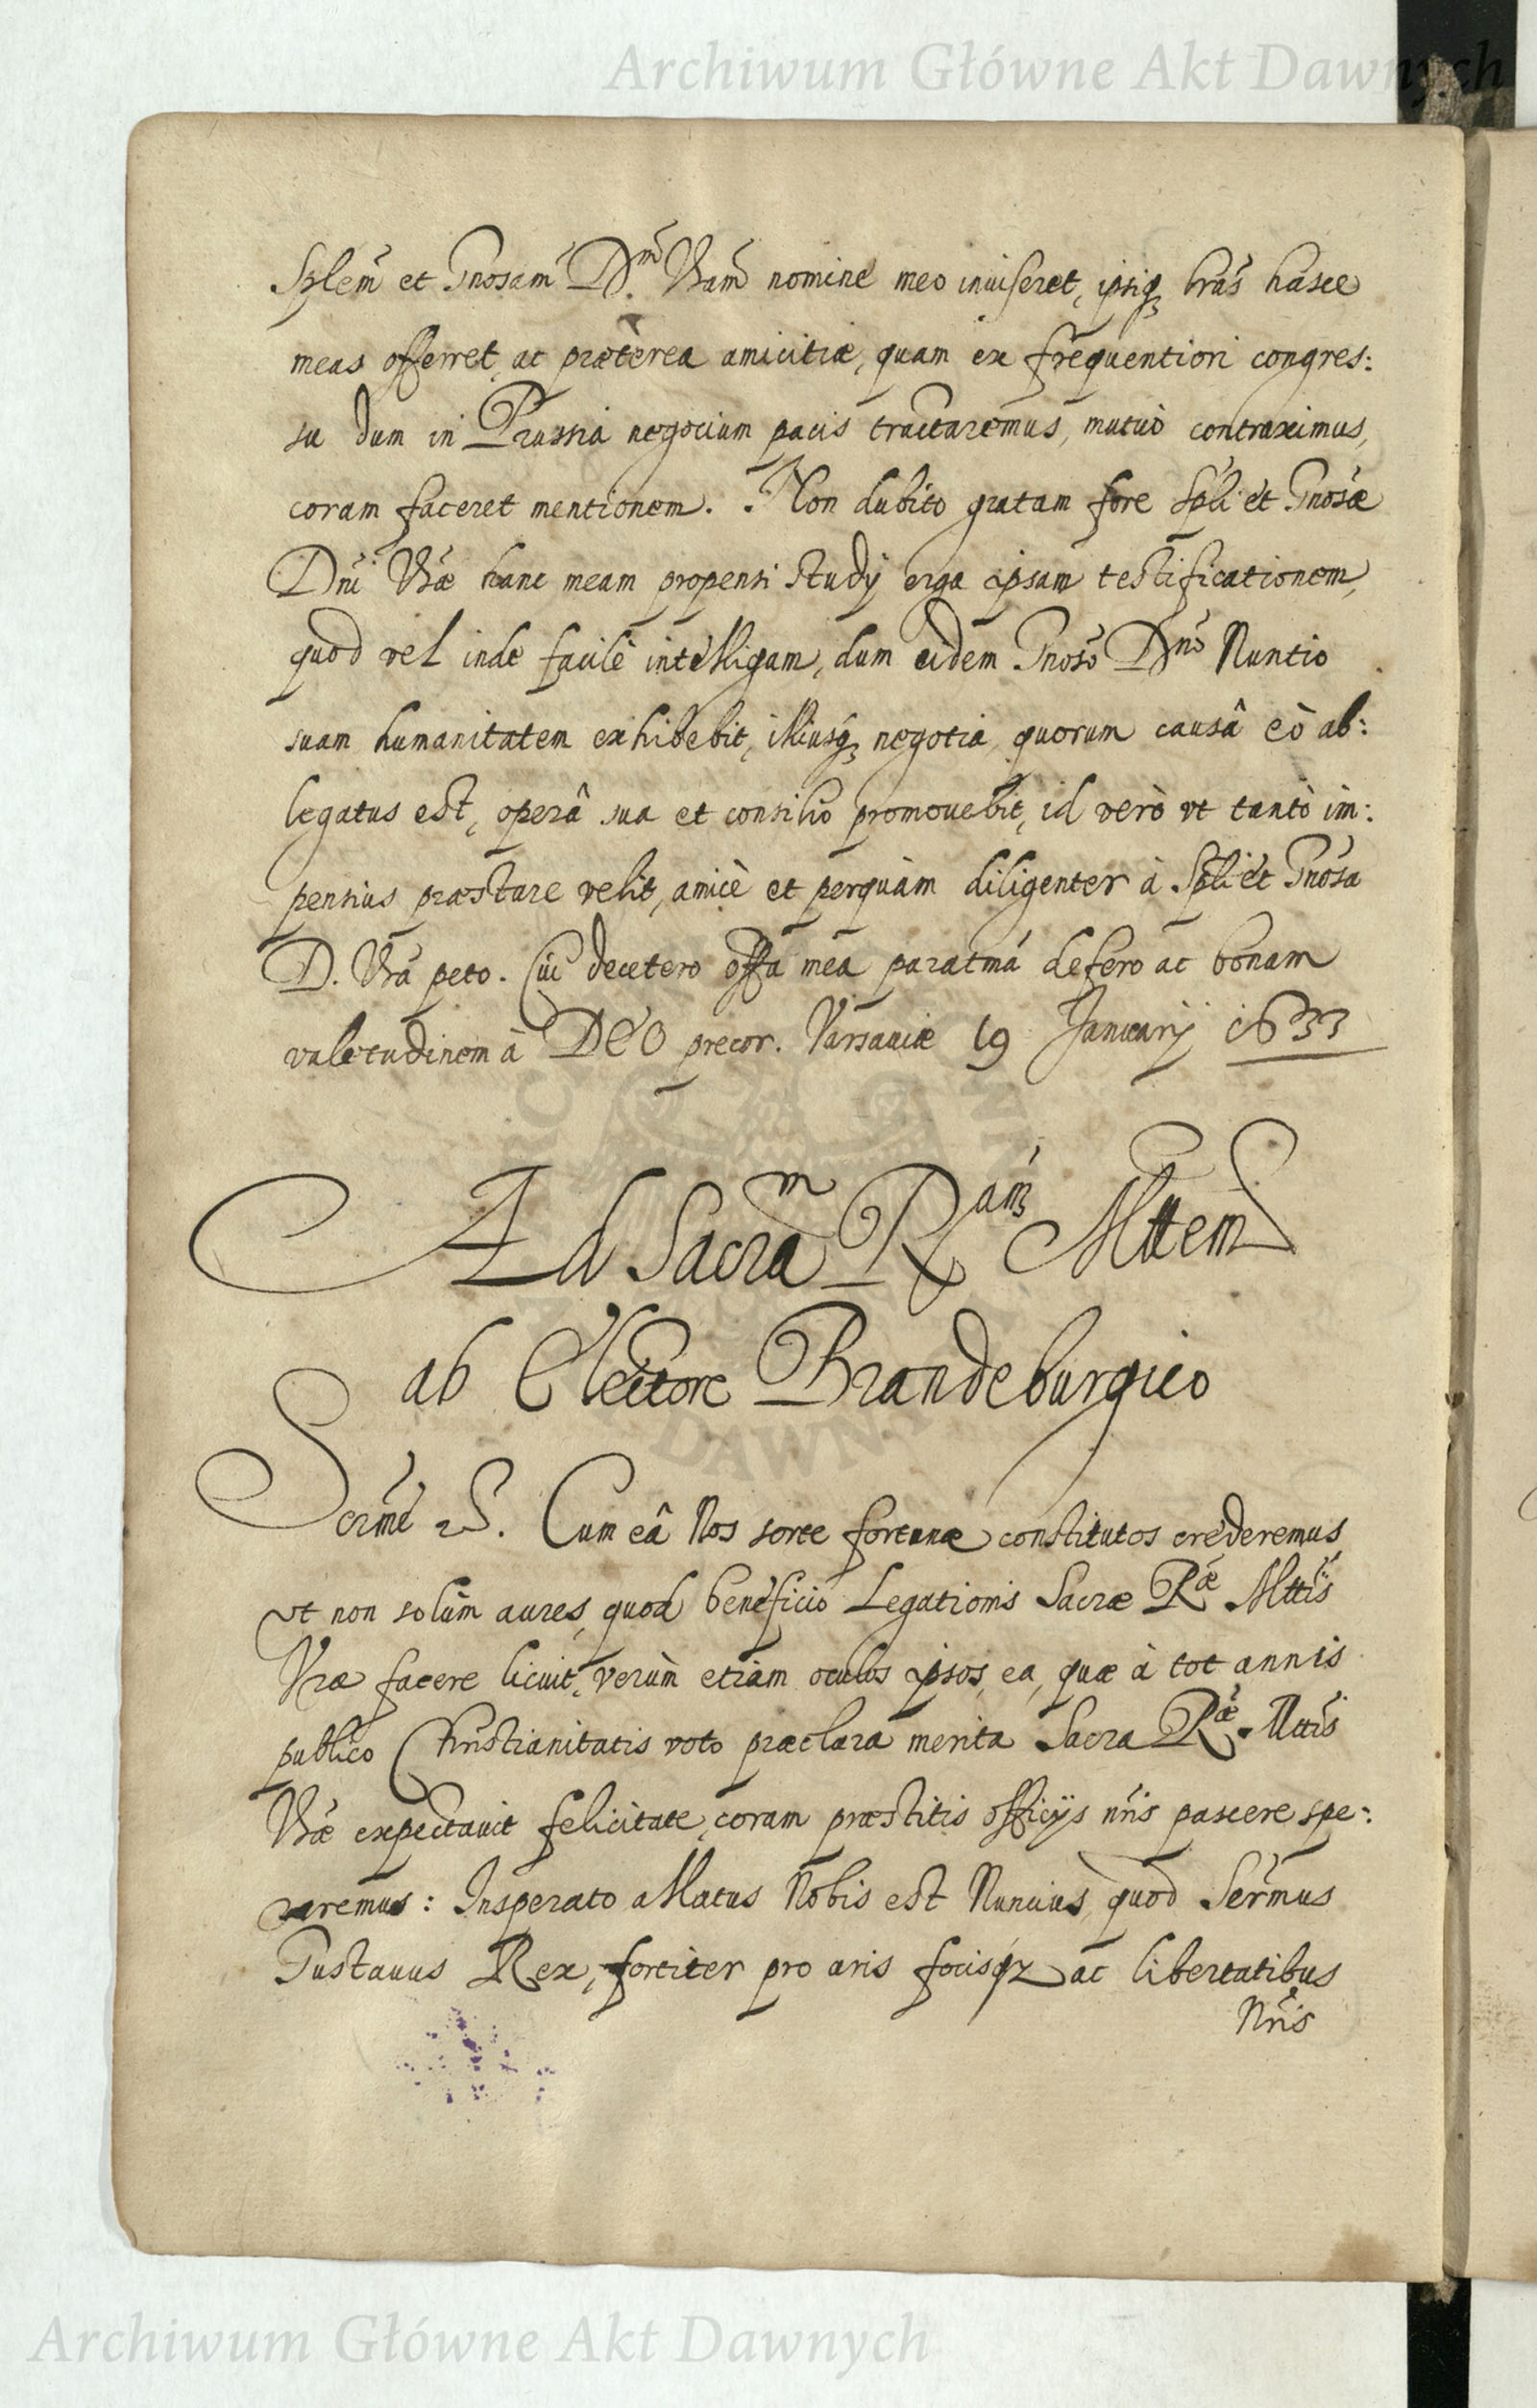 Archiwum Główne Akt Dawnych
Splem̃ et Gnosam̃ D.m̃ Vram̃ nomine meo inuiseret, ipsiq; lrãs hasce
meas offerret, ac præterea amicitiæ, quam ex frequentiori congres:
su dum in Prussia negocium pacis tractaremus, mutuò contraximus,
coram faceret mentionem. Non dubito gratam fore Spli et Gnosæ
Dni Vræ hanc meam propensi studij erga ipsam testificationem,
quod vel inde facilè intelligam, dum eidem Gnoso Dno Nuntio
suam humanitatem exhibebit, illiusq; negotia, quorum causâ eò ab:
legatus est, operâ sua et consilio promouebit, id verò vt tantò im:
pensius præstare velit, amicè et perquàm diligenter à Spli et Gnosa
D. Vra peto. Cui decetero offa mea paratma defero ac bonam
valetudinem à DEO precor. Varsauiæ 19 Januarij 1633
Ad Sacram R.am Mttem
ab Electore Brandeburgico
Sermẽ etc. Cum eâ Nos sorte fortunæ constitutos crederemus
vt non solùm aures, quod beneficio Legationis Sacræ R.æ Mttis
Vræ facere licuit, verùm etiam oculos ipsos, ea, quæ à tot annis
publico Christianitatis voto præclara merita Sacra R.æ Mttis
Vræ expectauit felicitate, coram præstitis officijs nris pascere spe:
raremus: Insperato allatus Nobis est Nuncius, quod Sermus
Gustauus Rex, fortiter pro aris focisqz ac libertatibus
Nris
Archiwum Główne Akt Dawnych